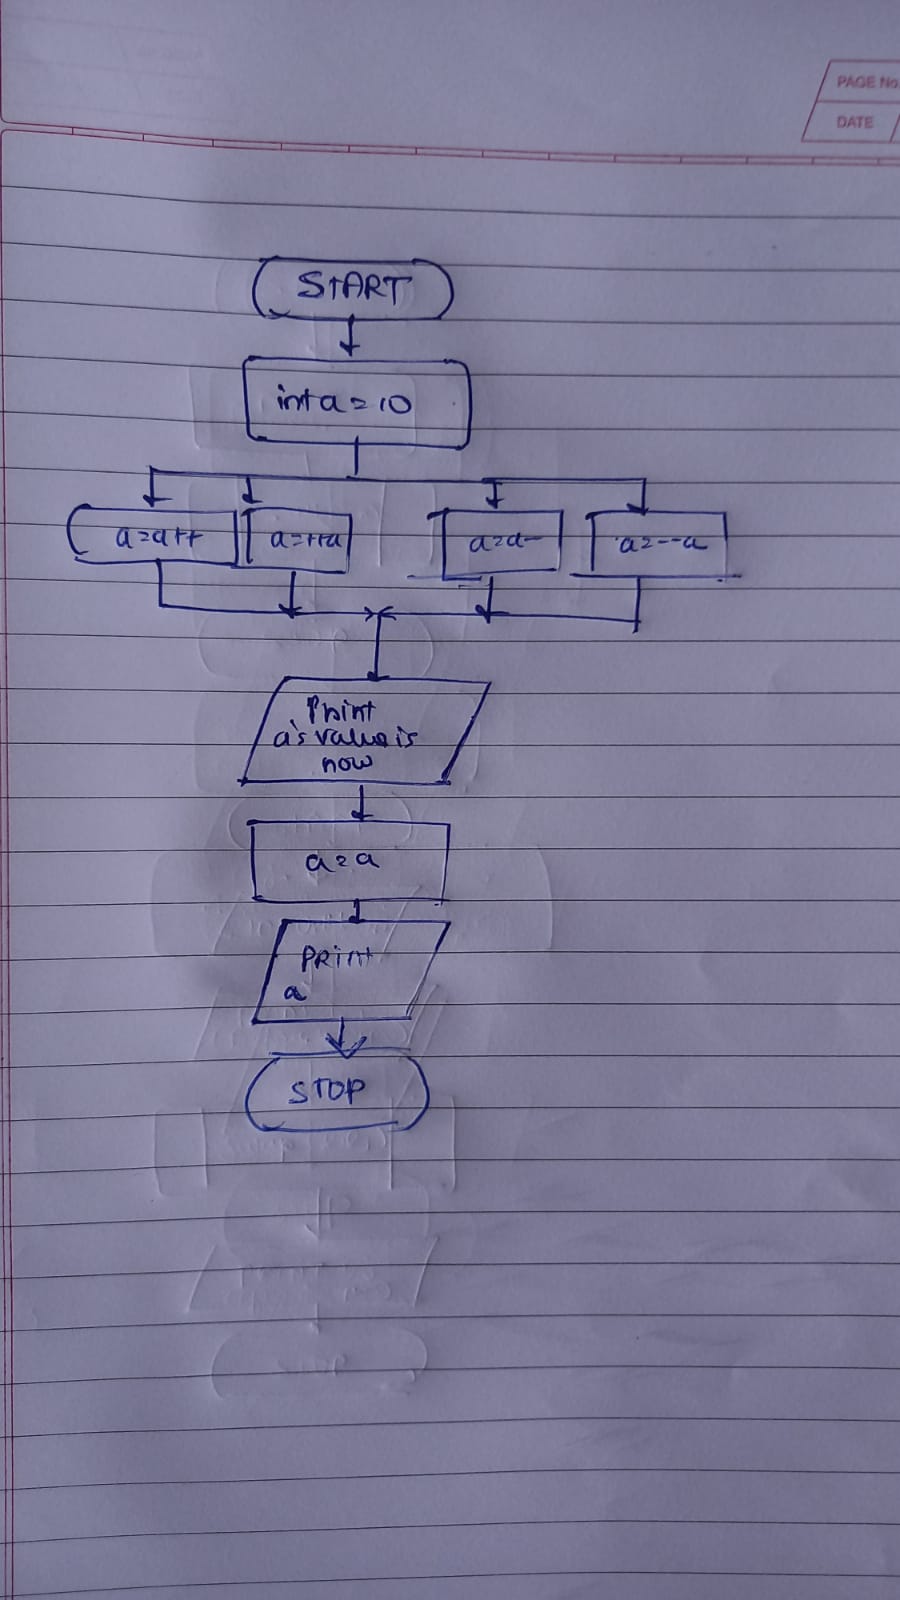 PAGE No
DATE
START
int a = 10
a=a++
a=++a
a=a-
a=--a
Print
a's value is
now
a=a
PRint
a
STOP